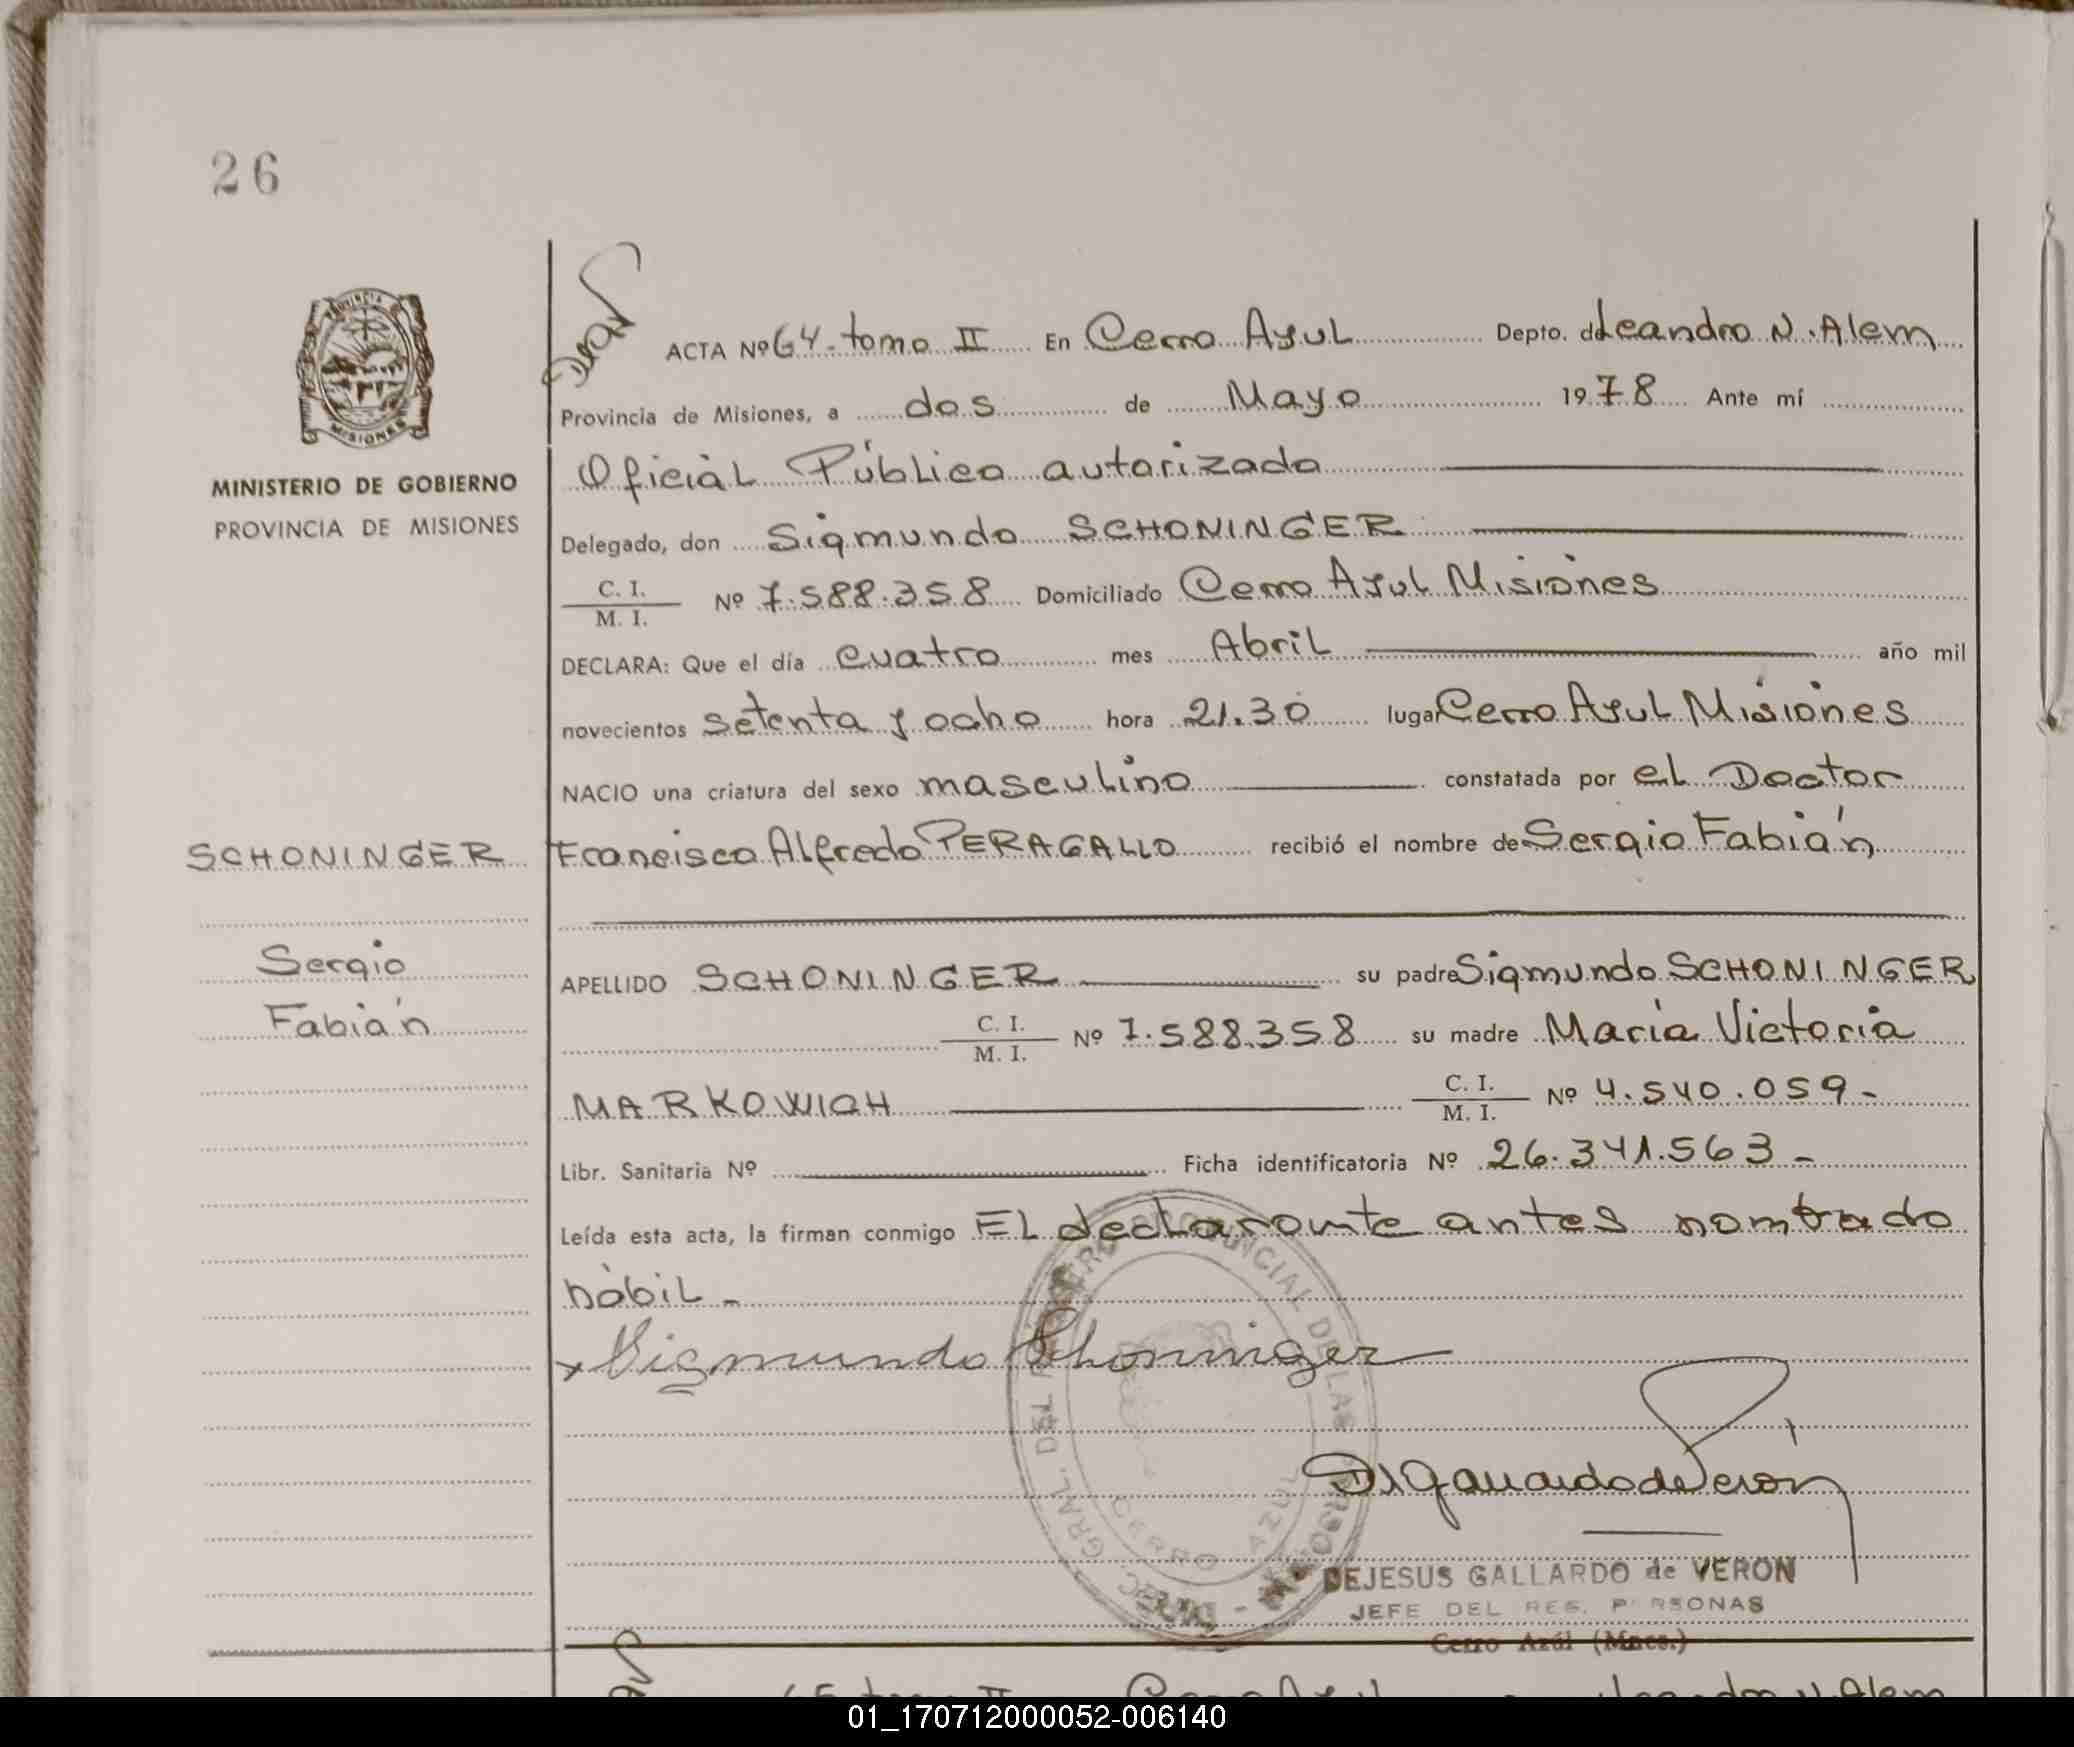 26
ACTA Nº 64 - tomo II En Cerro Azul Depto. de Leandro N. Alem
Provincia de Misiones, a dos de Mayo 1978 Ante mí
Oficial Público autorizado
MINISTERIO DE GOBIERNO
PROVINCIA DE MISIONES
Delegado, don Sigmundo SCHONINGER
C. I.
M. I. Nº 7.588.358 Domiciliado Cerro Azul Misiones
DECLARA: Que el día cuatro mes Abril año mil
novecientos setenta y ocho hora 21.30 lugar Cerro Azul Misiones
NACIO una criatura del sexo masculino constatada por el Doctor
SCHONINGER
Francisco Alfredo PERAGALLO recibió el nombre de Sergio Fabián
Sergio
Fabián
APELLIDO SCHONINGER su padre Sigmundo SCHONINGER
C. I.
M. I. Nº 7.588.358 su madre María Victoria
MARKOWICH C. I.
M. I. Nº 4.540.059-
Libr. Sanitaria Nº Ficha identificatoria Nº 26.341.563-
Leída esta acta, la firman conmigo El declarante antes nombrado
hábil-
x Sigmundo Schoninger
DIREC. GRAL. DEL REGISTRO PROVINCIAL DE LAS PERSONAS
CERRO AZUL
DJ Gallardo de Veron
DEJESUS GALLARDO de VERON
JEFE DEL REG. PERSONAS
Cerro Azúl (Mnes.)
65 tomo II Cerro Azul Leandro N. Alem
01_170712000052-006140